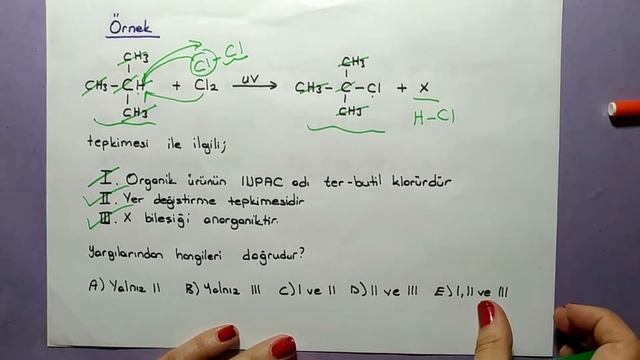 Örnek
CH3 Cl-Cl CH3
CH3-CH + Cl2 UV → CH3-C-Cl + X
CH3 CH3 H-Cl
tepkimesi ile ilgili;
I. Organik ürünün IUPAC adı ter-butil klorürdür
II. Yer değiştirme tepkimesidir
III. X bileşiği anorganiktir.
Yargılarından hangileri doğrudur?
A) Yalnız II B) Yalnız III C) I ve II D) II ve III E) I, II ve III